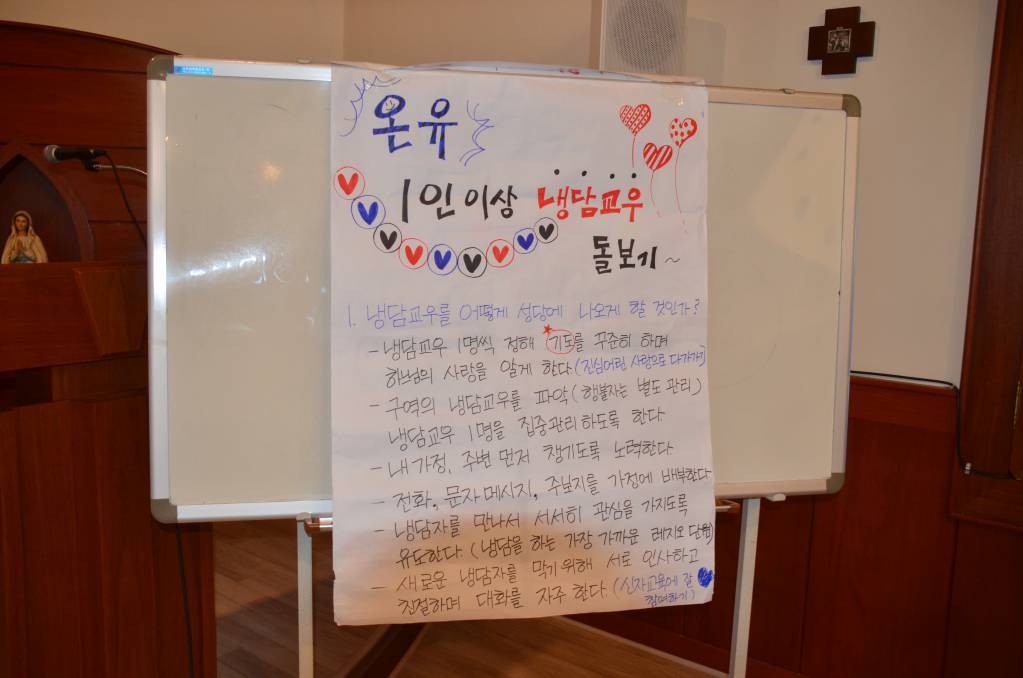 온유
1인 이상 냉담교우
돌보기~
1. 냉담교우를 어떻게 성당에 나오게 할 것인가?
- 냉담교우 1명씩 정해 기도를 꾸준히 하며
하느님의 사랑을 알게 한다. (진심어린 사랑으로 다가가기)
- 구역의 냉담교우를 파악 (행불자는 별도 관리)
냉담교우 1명을 집중관리 하도록 한다.
- 내 가정, 주변 먼저 챙기도록 노력한다
- 전화, 문자 메시지, 주보지를 가정에 배부한다
- 냉담자를 만나서 서서히 관심을 가지도록
유도한다. (냉담을 하는 가장 가까운 레지오 단원)
- 새로운 냉담자를 막기 위해 서로 인사하고
친절하며 대화를 자주 한다. (신자교육에 잘
참여하기)